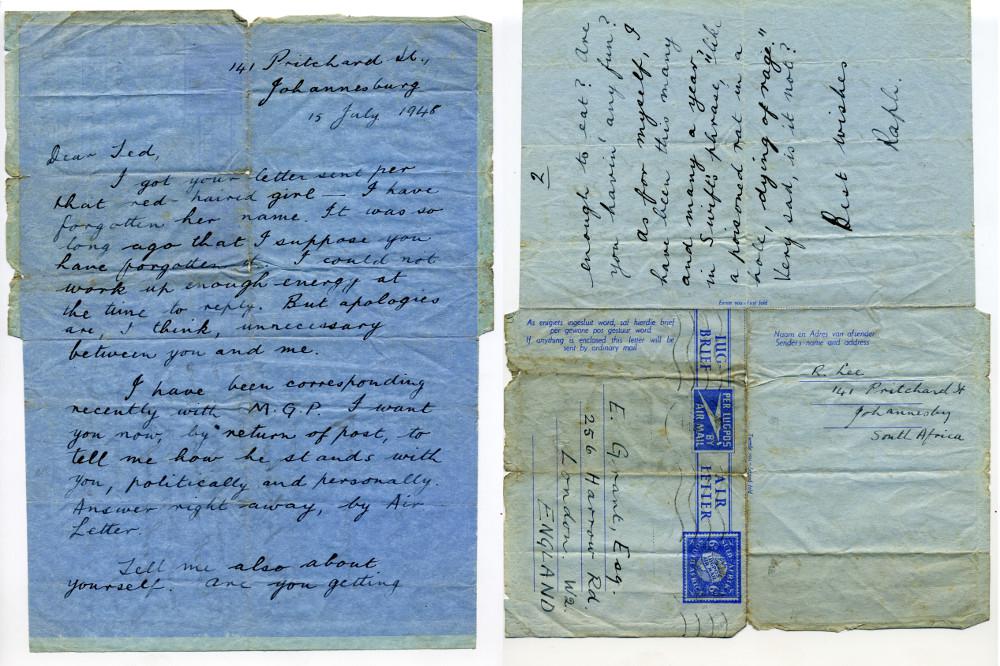 141 Pritchard St.,
Johannesburg
15 July 1948
Dear Ted,
I got your letter sent per
that red-haired girl — I have
forgotten her name. It was so
long ago that I suppose you
have forgotten it. I could not
work up enough energy at
the time to reply. But apologies
are, I think, unnecessary
between you and me.
I have been corresponding
recently with M.G.P. I want
you now, by return of post, to
tell me how he stands with
you, politically and personally.
Answer right away, by Air
Letter.
Tell me also about
yourself. Are you getting
2
enough to eat? Are
you havin' any fun?
As for myself, I
have been this many
and many a year,
in Swift's phrase, "like
a poisoned rat in a
hole, dying of rage."
Very sad, is it not?
Best wishes
Raph.
As enigiets ingesluit word, sal hierdie brief
per gewone pos gestuur word
If anything is enclosed this letter will be
sent by ordinary mail
LUG-
BRIEF
PER LUGPOS
BY
AIR MAIL
AIR
LETTER
SUID-AFRIKA
SOUTH AFRICA
6D
6D
E. Grant, Esq.
256 Harrow Rd.
London W2.
ENGLAND
Naam en Adres van afsender
Sender's name and address
R. Lee
141 Pritchard St
Johannesburg
South Africa